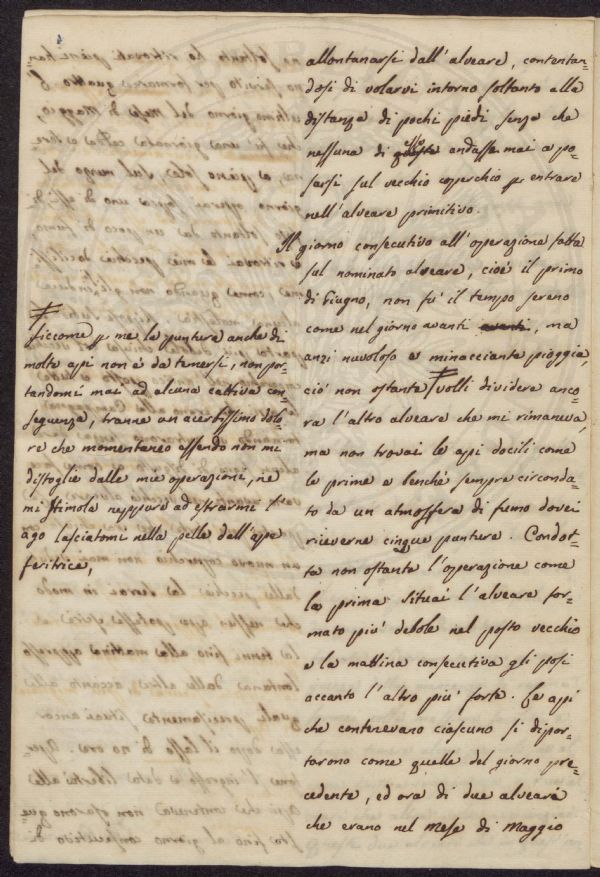 allontanarsi dall'alveare, contentan=
dosi di volarvi intorno soltanto alla
distanza di pochi piedi senza che
nessuna di esse andasse mai a po=
sarsi sul vecchio coperchio p entrare
nell'alveare primitivo.
Il giorno consecutivo all'operazione fatta
sul nominato alveare, cioè il primo
di Giugno, non fù il tempo sereno
come nel giorno avanti avanti, ma
anzi nuvoloso e minacciante pioggia,
ciò non ostante volli dividere anco=
ra l'altro alveare che mi rimaneva,
ma non trovai le api docili come
le prime e benché sempre circonda=
to da un atmosfera di fumo dovei
riceverne cinque punture. Condot=
ta non ostante l'operazione come
la prima situai l'alveare for=
mato più debole nel posto vecchio
e la mattina consecutiva gli posi
accanto l'altro più forte. Le api
che contenevano ciascuno si dipor=
tarono come quelle del giorno pre=
cedente, ed ora di due alveari
che erano nel Mese di Maggio
siccome p me le punture anche di
molte api non è da temersi, non por=
tandomi mai ad alcuna cattiva con=
seguenza, tranne un acerbissimo dolo=
re che momentaneo essendo non mi
distoglie dalle mie operazioni, ne
mi stimola neppure ad estrarmi l'
ago lasciatomi nella pelle dall'ape
feritrice,